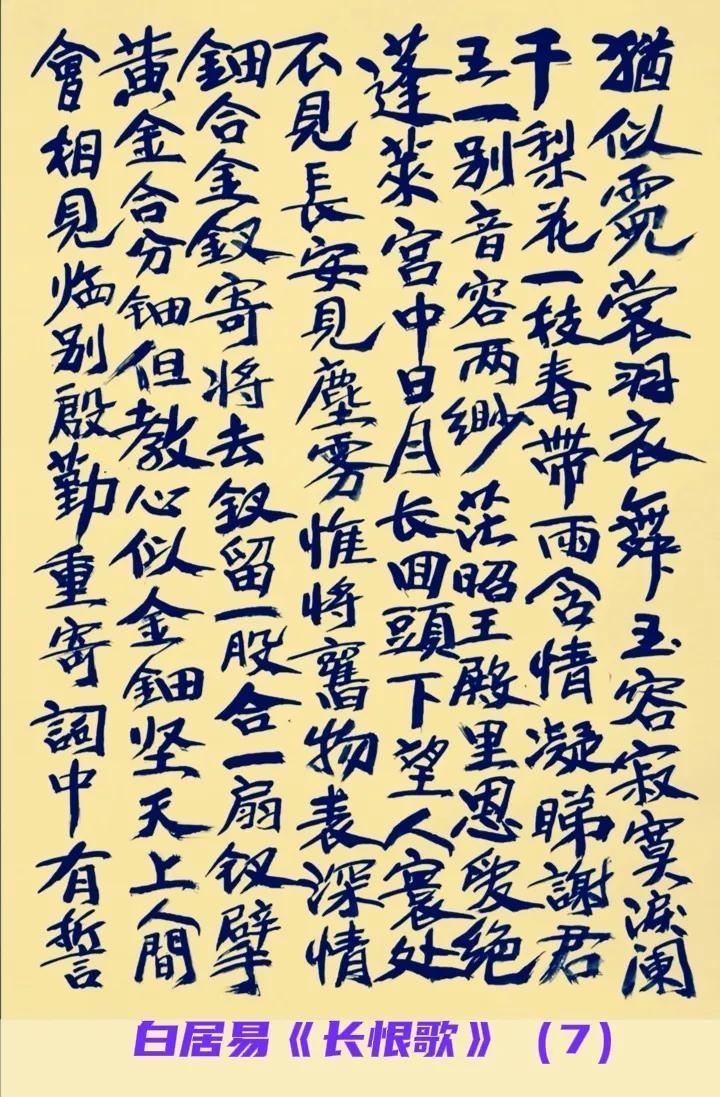 猶似霓裳羽衣舞玉容寂寞淚闌
干梨花一枝春帶雨含情凝睇謝君
王一别音容两緲茫昭王殿里恩爱絕
蓬萊宮中日月长回頭下望人寰处
不見長安見塵雾惟将舊物表深情
鈿合金釵寄将去釵留一股合一扇釵擘
黄金合分鈿但教心似金鈿坚天上人間
會相見临别殷勤重寄詞中有誓
白居易《长恨歌》（7）